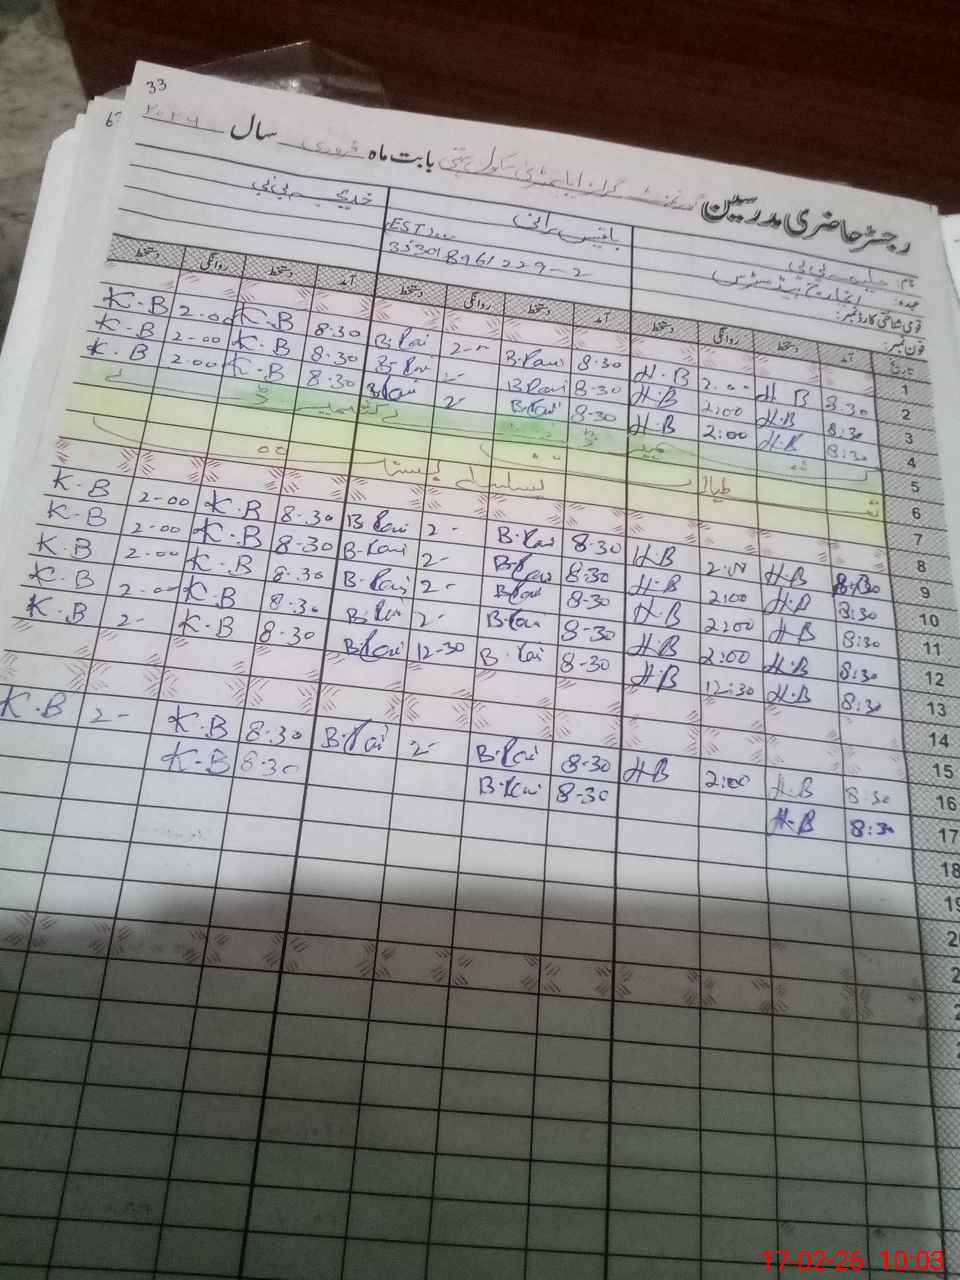 33
رجسٹر حاضری مدرسین گورنمنٹ بابت ماہ فروری سال ۲۰۲۶
نام: حلیمہ بی بی بلقیس رانی خدیجہ بی بی
عہدہ: انچارج ہیڈمسٹریس EST
قومی شناختی کارڈ نمبر:
فون نمبر:
تاریخ آمد دستخط روانگی دستخط آمد دستخط روانگی دستخط آمد دستخط روانگی دستخط
1
2 8.30 H.B 2.00 H.B 8.30 B.Rani 2- B.Rani 8.30 K.B 2.00 K.B
3 8:30 H.B 2:00 H.B 8.30 B.Rani 2- B.Rani 8.30 K.B 2.00 K.B
4 8:30 H.B 2:00 H.B 8.30 B.Rani 2- B.Rani 8.30 K.B 2.00 K.B
5 کشمیر ڈے
6 تعطیلات بسلسلہ بسنت
7
8
9 8:30 H.B 2:00 H.B 8.30 B.Rani 2- B.Rani 8.30 K.B 2.00 K.B
10 8:30 H.B 2:00 H.B 8.30 B.Rani 2- B.Rani 8.30 K.B 2.00 K.B
11 8:30 H.B 2:00 H.B 8.30 B.Rani 2- B.Rani 8.30 K.B 2.00 K.B
12 8:30 H.B 2:00 H.B 8.30 B.Rani 2- B.Rani 8.30 K.B 2.00 K.B
13 8:30 H.B 12:30 H.B 8.30 B.Rani 12-30 B.Rani 8.30 K.B 2- K.B
14
15
16 8:30 H.B 2:00 H.B 8.30 B.Rani 2- B.Rani 8.30 K.B 2- K.B
17 8:30 H.B 8.30 B.Rani 8.30 K.B
18
17-02-26 10:03